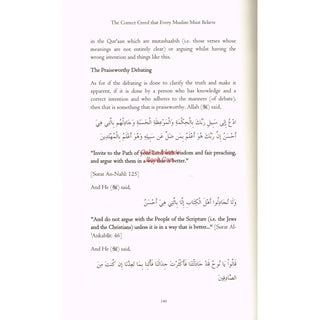 The Correct Creed that Every Muslim Must Believe
in the Qur'aan which are mutashaabih (i.e. those verses whose
meanings are not entirely clear) or arguing whilst having the
wrong intention and things like that.
The Praiseworthy Debating
As for if debating is done to clarify the truth and make it
apparent, if it is done by a person who has knowledge and a
correct intention and who adheres to the manners (of debate),
then that is something that is praiseworthy. Allah (ﷻ) said,
ادْعُ إِلَى سَبِيلِ رَبِّكَ بِالْحِكْمَةِ وَالْمَوْعِظَةِ الْحَسَنَةِ وَجَادِلْهُم بِالَّتِي هِيَ
أَحْسَنُ إِنَّ رَبَّكَ هُوَ أَعْلَمُ بِمَن ضَلَّ عَن سَبِيلِهِ وَهُوَ أَعْلَمُ بِالْمُهْتَدِينَ
"Invite to the Path of your Lord with wisdom and fair preaching,
and argue with them in a way that is better."
[Surat An-Nahl: 125]
And He (ﷻ) said,
وَلَا تُجَادِلُوا أَهْلَ الْكِتَابِ إِلَّا بِالَّتِي هِيَ أَحْسَنُ
"And do not argue with the People of the Scripture (i.e. the Jews
and the Christians) unless it is in a way that is better..." [Surat Al-
'Ankabût: 46]
And He (ﷻ) said,
قَالُوا يَا نُوحُ قَدْ جَادَلْتَنَا فَأَكْثَرْتَ جِدَالَنَا فَأْتِنَا بِمَا تَعِدُنَا إِن كُنتَ مِنَ
الصَّادِقِينَ